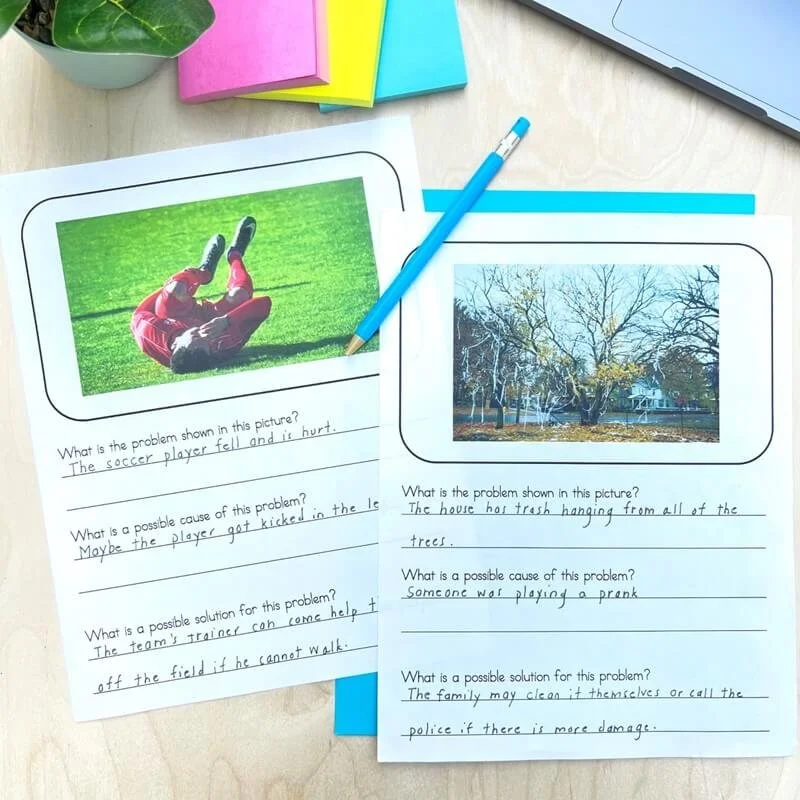 What is the problem shown in this picture?
The soccer player fell and is hurt.
What is a possible cause of this problem?
Maybe the player got kicked in the le
What is a possible solution for this problem?
The team's trainer can come help t
off the field if he cannot walk.
What is the problem shown in this picture?
The house has trash hanging from all of the
trees.
What is a possible cause of this problem?
Someone was playing a prank
What is a possible solution for this problem?
The family may clean it themselves or call the
police if there is more damage.